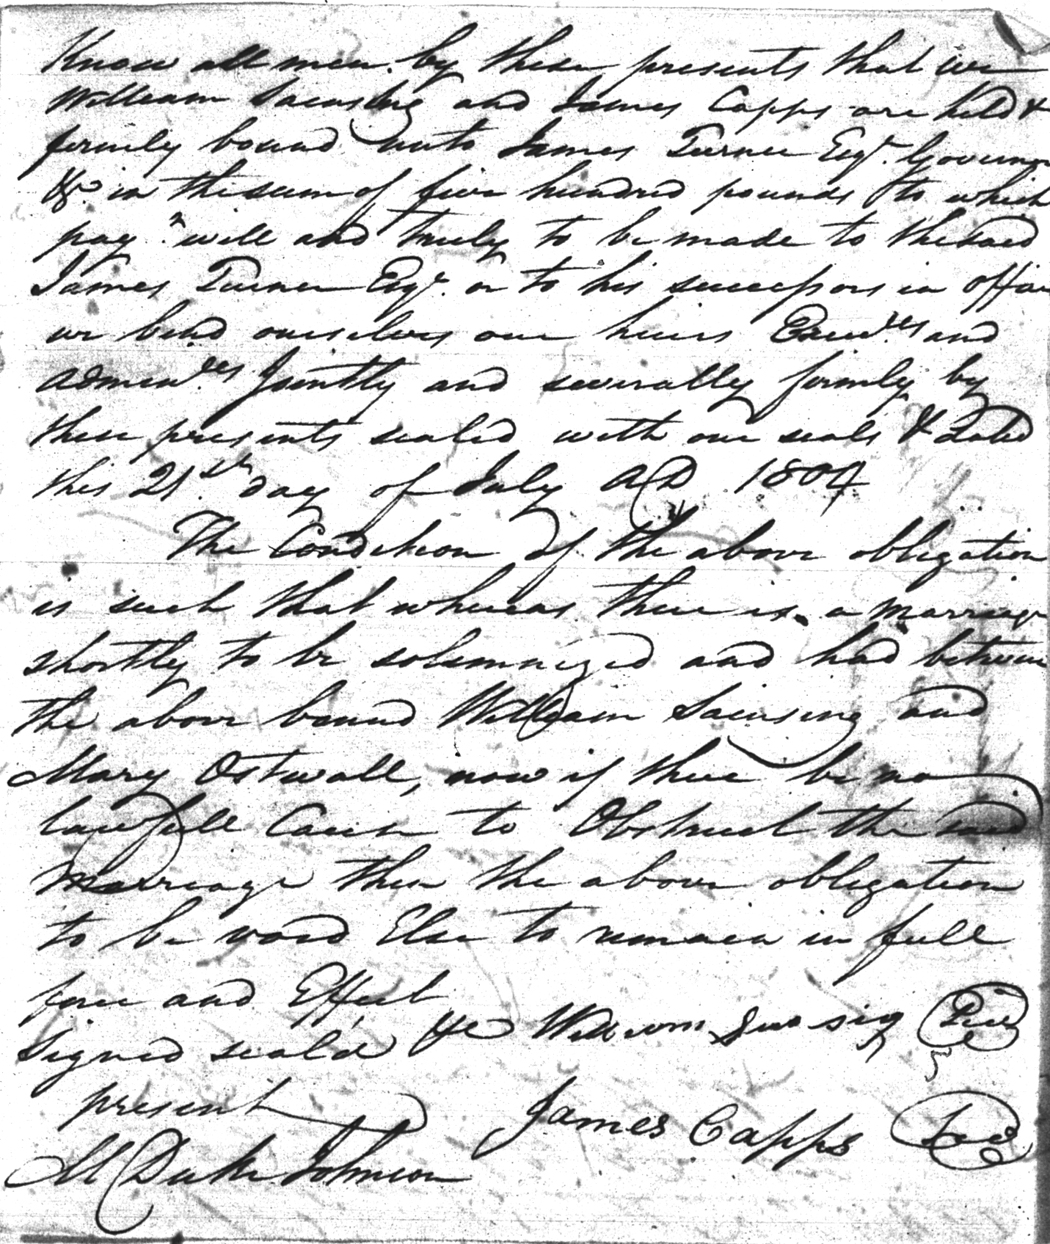 Know all men by these presents that we
William Saintsing and James Capps are held &
firmly bound unto James Turner Esqr. Governor
&c. in the sum of five hundred pounds to which
pay.n well and truly to be made to the said
James Turner Esqr. or to his successors in office
we bind ourselves our heirs and
Jointly and severally firmly by
these presents sealed with our seals & dated
this 21st day of July AD 1804
The Condition of the above obligation
is such that whereas there is a marriage
shortly to be solemnized and had between
the above bound William and
Mary Ostwalt, now if there be no
lawfull Cause to Obstruct the said
Marriage then the above obligation
to be void Else to remain in full
force and Effect
Signed seal'd &c William
present James Capps Seal
M Duke Johnson